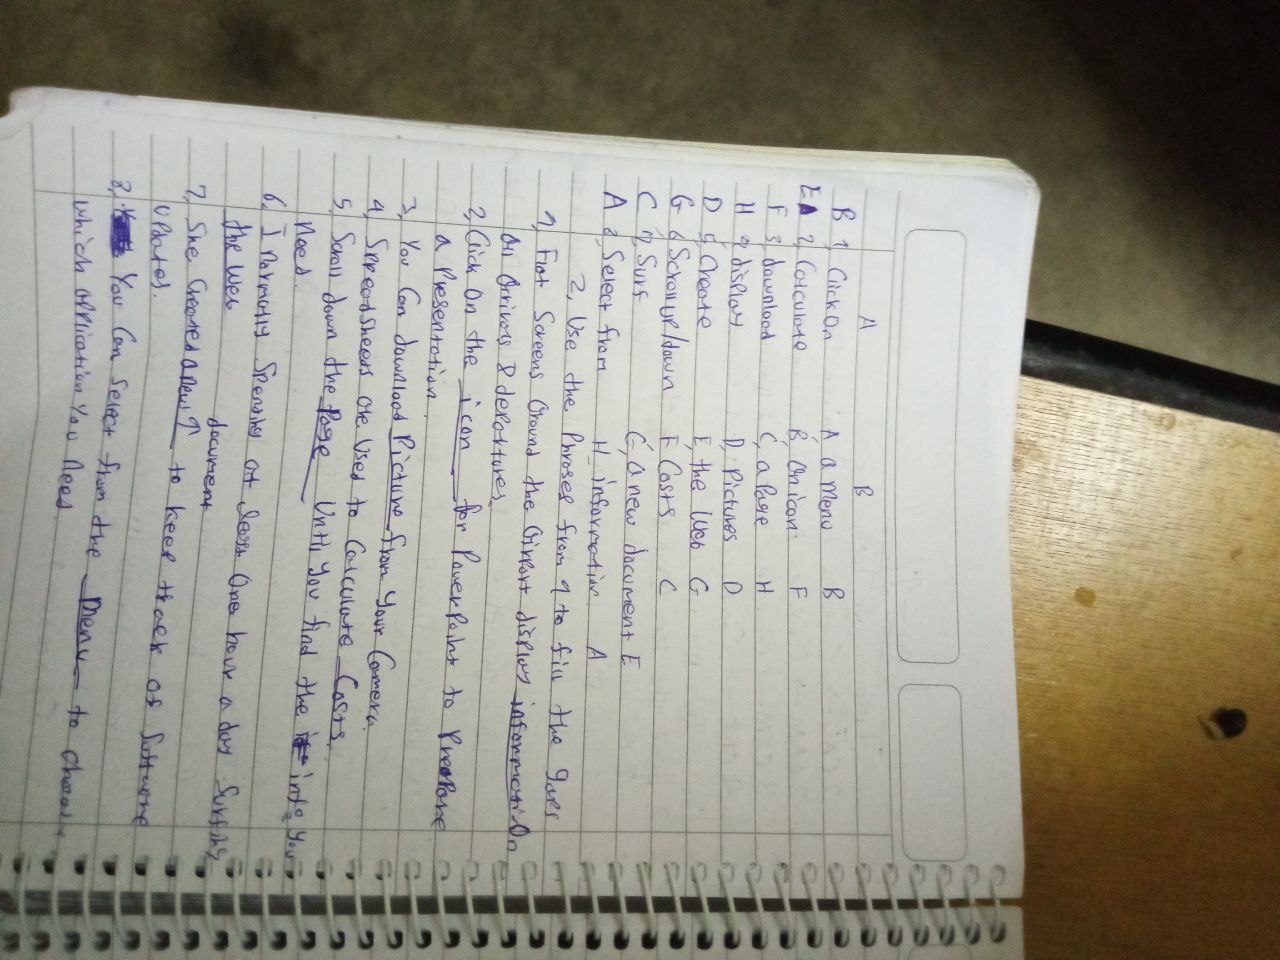 A B
B 1, Click On A, a Menu B
E 2, Calculate B, On icon F
F 3, download C, a Page H
H 4 display D, Pictures D
D 5, Create E, the Web G
G 6 Scroll up/down F Costs C
C 7, Surf G, a new document E
A 8, Select from H_ information A
2, Use the Phrases from 1 to fill the gaps
1, Flat Screens Ground the airport display information On
all arrivals & departures
2, Click On the icon for PowerPoint to Prepare
a Presentation.
3, You Can download Picture from Your Camera.
4, SpreadSheets are Used to Calculate Costs.
5, Scroll down the Page Until You find the info You
Need.
6, I normally Spending at least One hour a day Surfing
the Web
document
7, She Created a new ↑ to keep track of Software
Updates.
8, You Can Select from the Menu to choose
which application You Need